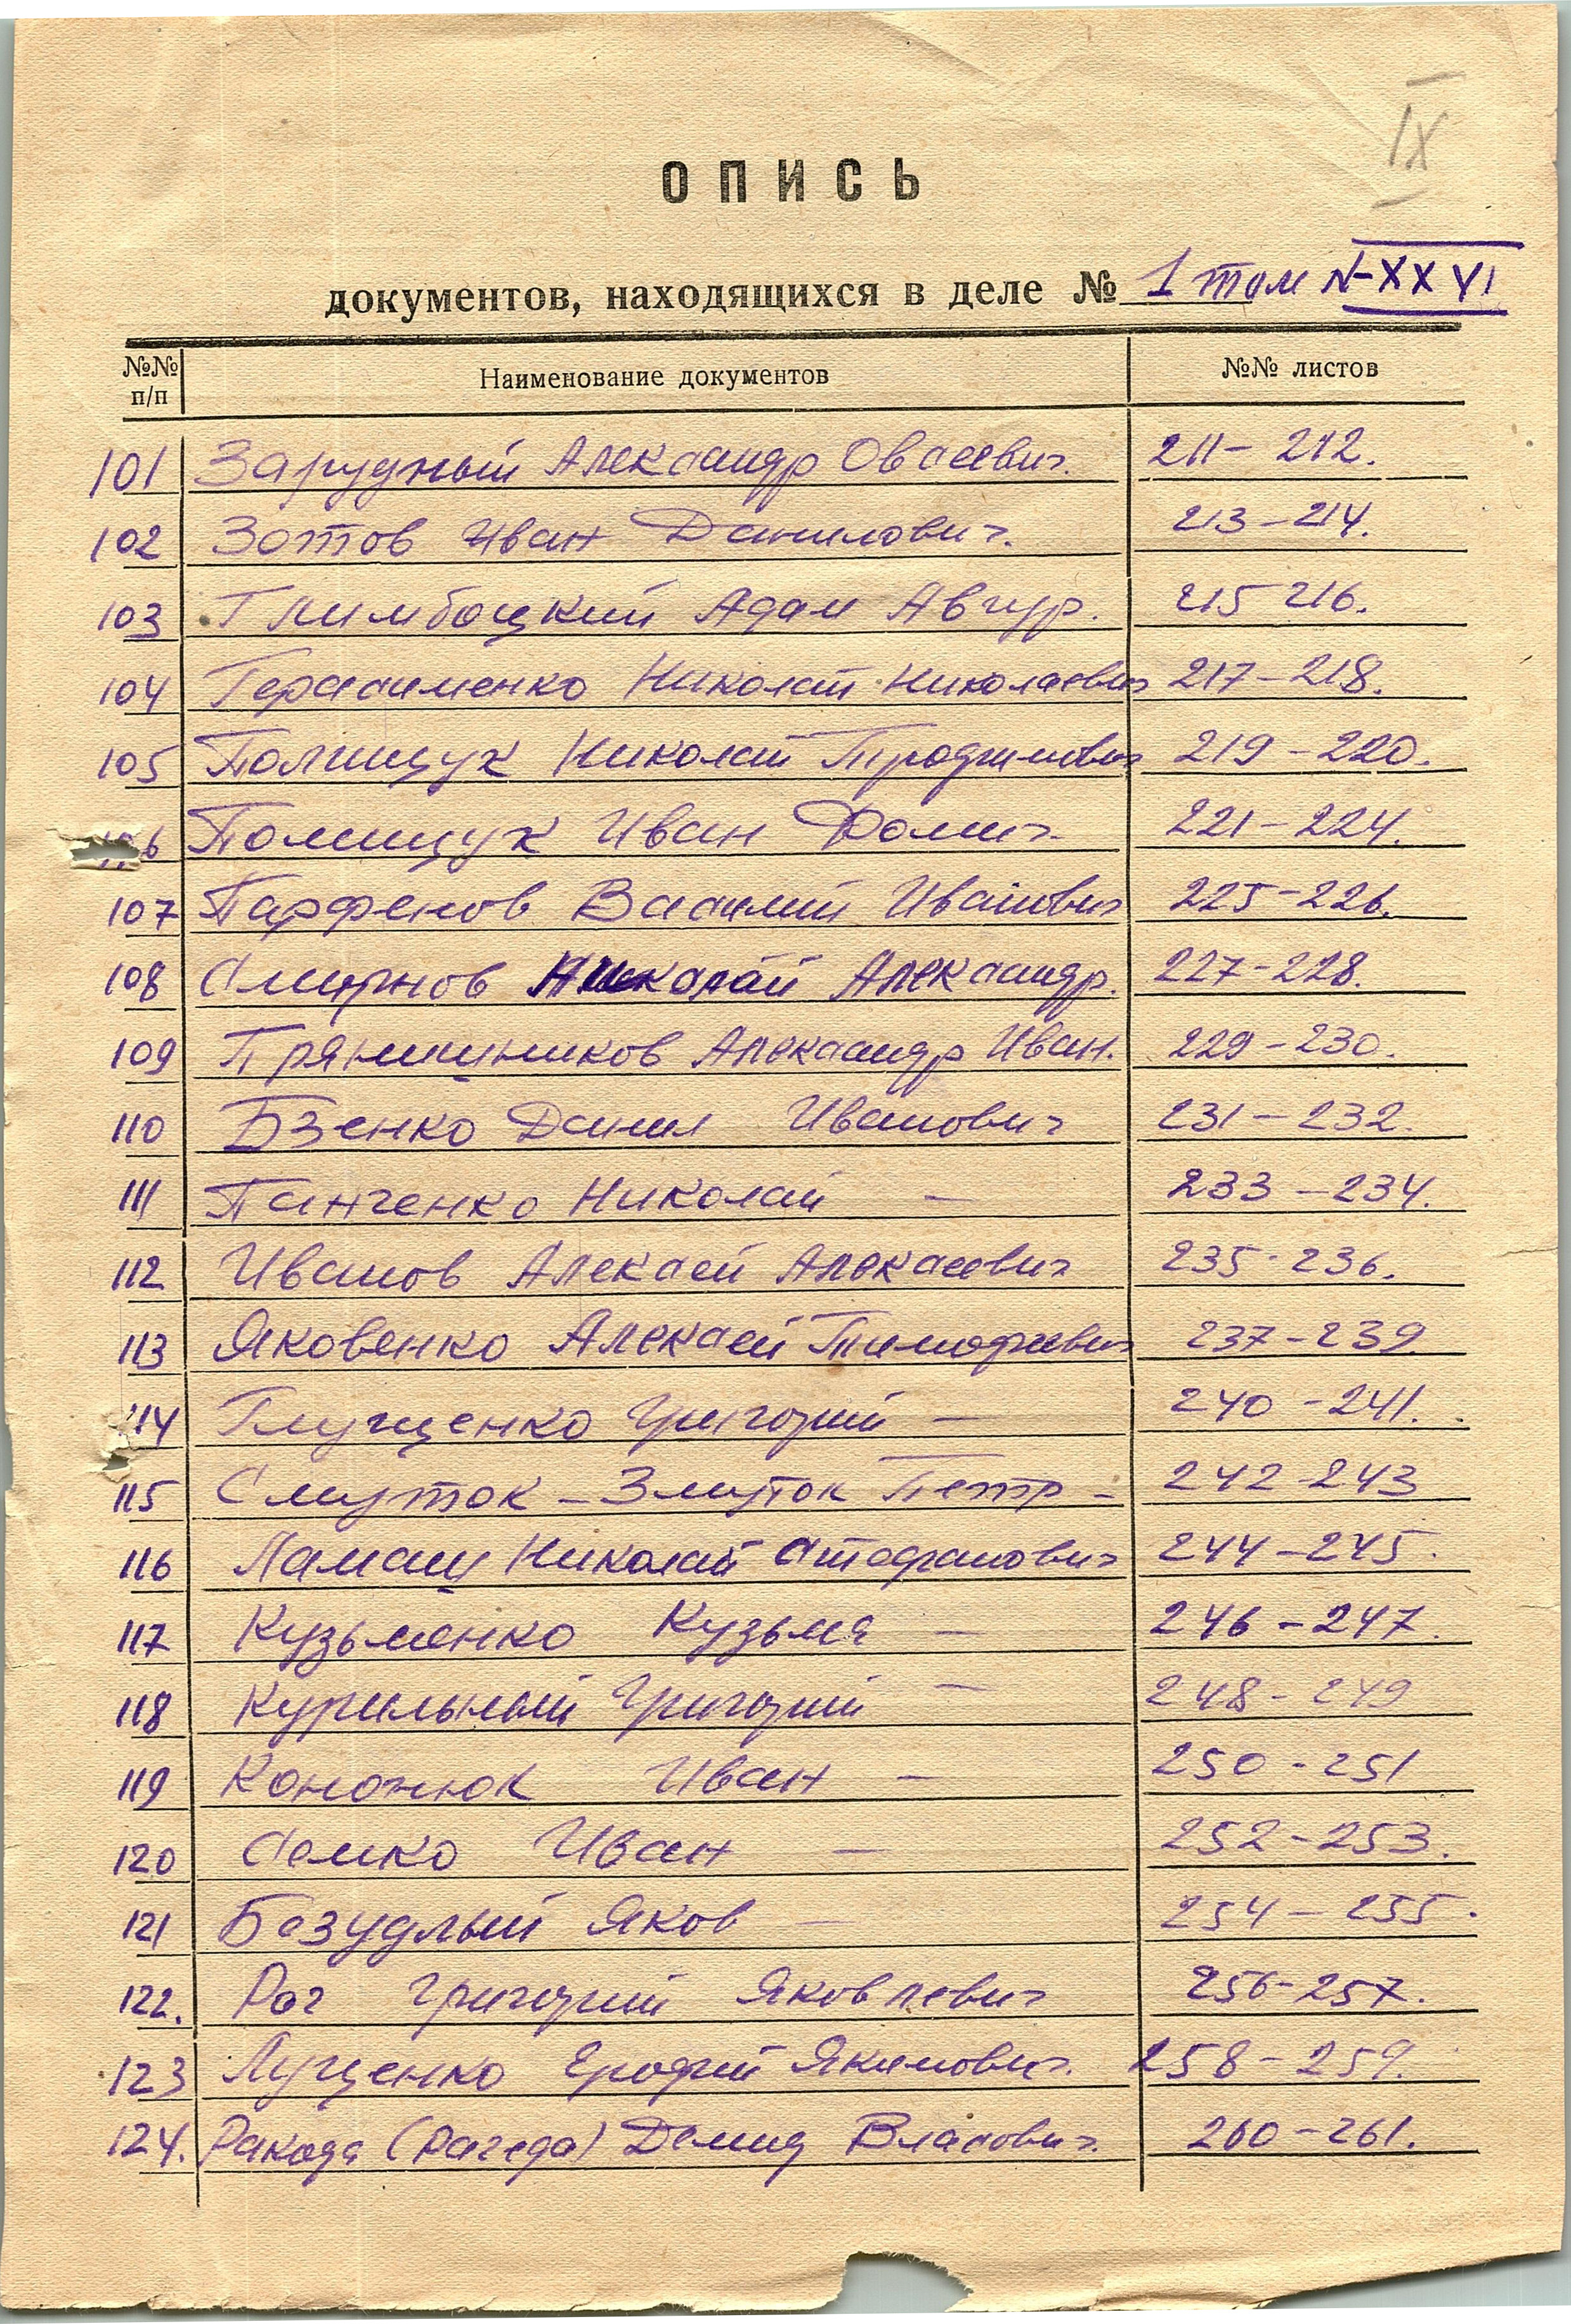 IX
ОПИСЬ
документов, находящихся в деле № 1 том N-XXVI
№№ п/п Наименование документов №№ листов
101 Зарудный Александр Овсеевич. 211-212.
102 Зотов Иван Данилович. 213-214.
103 Глимбоцкий Адам Авгур. 215 216.
104 Герасименко Николай Николаевич 217-218.
105 Полищук Николай 219-220.
106 Полищук Иван Фомич 221-224.
107 Парфенов Василий Иванович 225-226.
108 Смирнов Николай Александр. 227-228.
109 Прянишников Александр Иван. 229-230.
110 Бзенко Данил Иванович 231-232.
111 Панченко Николай — 233-234.
112 Иванов Алексей Алексеевич 235-236.
113 Яковенко Алексей Тимофеевич 237-239.
114 Глущенко Григорий — 240-241.
115 Смуток-Змуток Петр - 242-243
116 Ламаш Николай Стефанович 244-245.
117 Кузьменко Кузьма — 246-247.
118 Курильный Григорий — 248-249
119 Кононюк Иван — 250-251
120 Семко Иван — 252-253.
121 Безудлый Яков — 254-255.
122. Рог Григорий Яковлевич 256-257.
123 Лущенко Ерофий Якимович. 258-259.
124. Ракода (Рагеда) Демид Власович. 260-261.